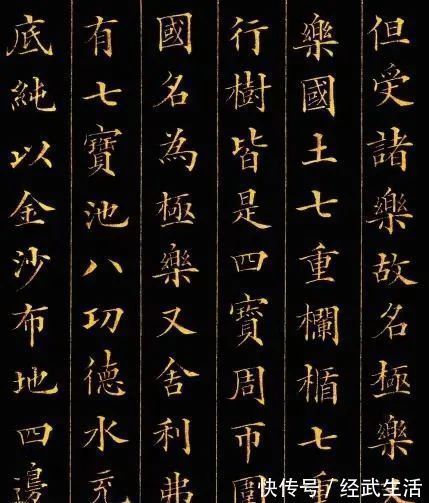 但受諸樂故名極樂
樂國土七重欄楯七重
行樹皆是四寶周帀圍
國名為極樂又舍利弗
有七寶池八功德水充
底純以金沙布地四邊
快传号/经武生活